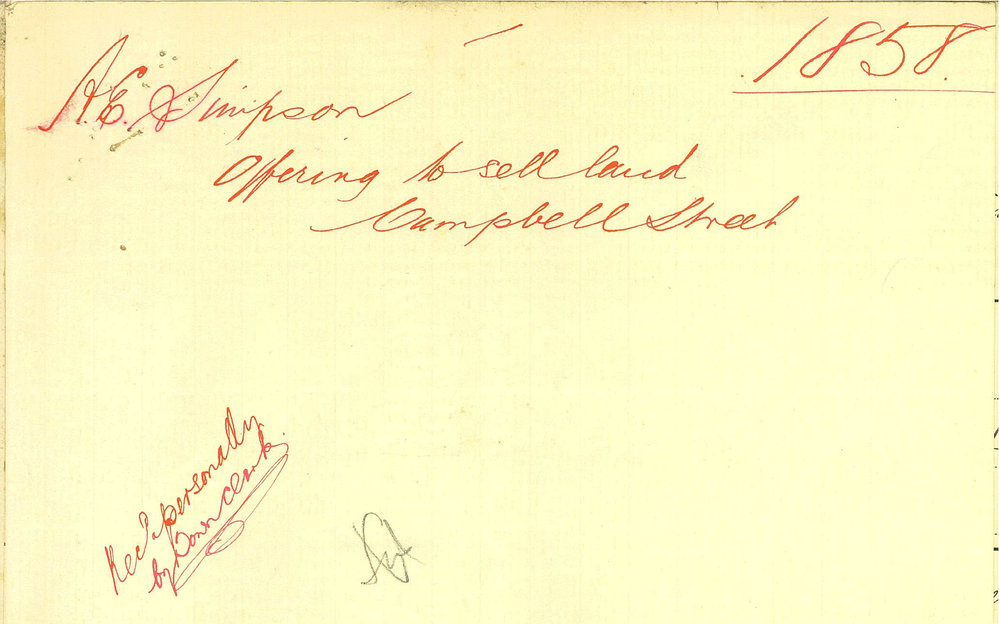 1858.
A.E. Simpson
Offering to sell land
Campbell Street
Rec'd personally
by Town Clerk